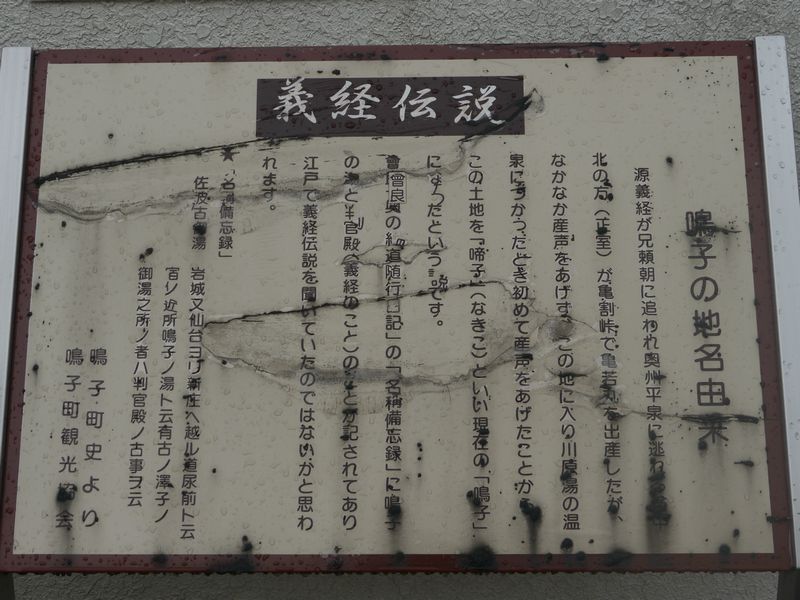 義経伝説
鳴子の地名由来
源義経が兄頼朝に追われ奥州平泉に逃れる
北の方(正室)が亀割峠で亀若丸を出産したが、
なかなか産声をあげず、この地に入り川原湯の温
泉につかったとき初めて産声をあげたことから
この土地を「啼子」(なきこ)といい現在の「鳴子」
になったという説です。
曾良奥の細道随行日記」の「名称備忘録」に鳴子
の湯と判官殿(義経のこと)のことが記されてあり
江戸で義経伝説を聞いていたのではないかと思わ
れます。
★「名称備忘録」
佐波古御湯
岩城又仙台ヨリ新庄ヘ越ル道尿前ト云
宮シ近所鳴子ノ湯ト云有古ノ澤子ノ
御湯之所ノ者ハ判官殿ノ古事ヲ云
鳴子町史より
鳴子町観光協会